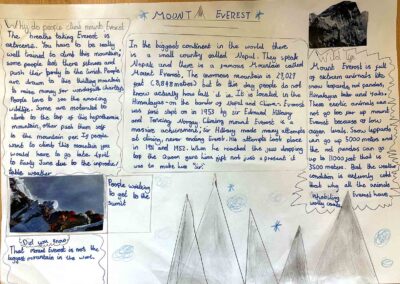 MOUNT EVEREST
Why do people climb mount Everest
The breathe taking Everest is
extreme. You have to be really
well trained to climb this mountain,
some people test there fitness and
push their body to the limit. People
are in to this extreme
to raise money for wonderful charitys
People love to see the amazing
wildlife. Some are motivated to
climb to the top of this hypothermic
mountain, other push them self
to the mountain per If people
want to climb this mountain you
would have to go late April
to Early June due to the unpredic-
table weather
People waiting
to get to the
sumit
Did you know
That Mount Everest is not the
biggest mountain in the world.
In the biggest continent in the world there
is a small country called Nepal. They speak
Nepali and there is a famous Mountain called
Mount Everest. The enormous mountain is 29,029
feet (8,848 metres) but to this day people do not
know actually how tall it is. It is located in the
Himalayas on the border of Nepal and China. Everest
was first step on in 1953 by Sir Edmund Hillary
and Tenzing Norgay. Climing Mount Everest is a
massive achievement, Sir Hillary made many attempts
at climing, never resting Everest. His attempts took place
in 1951 and 1952. When he reached the jaw dropping
top the Queen gave him gift not just a present it
was to make him 'Sir'.
Wild life
Mount Everest is full
of extreem animals like
snow leopards, red pandas,
Himalayan birds and Yaks.
These exotic animals are
not go too far up mount
Everest because of low
oxgen levels. Snow leopards
can go up 6000 meter and
the red pandas can go
up to 11000 feet that is
3500 metres. But the wheather
condition is extremly cold
that why all the animals
inhabiting Everest have
wolly coats.